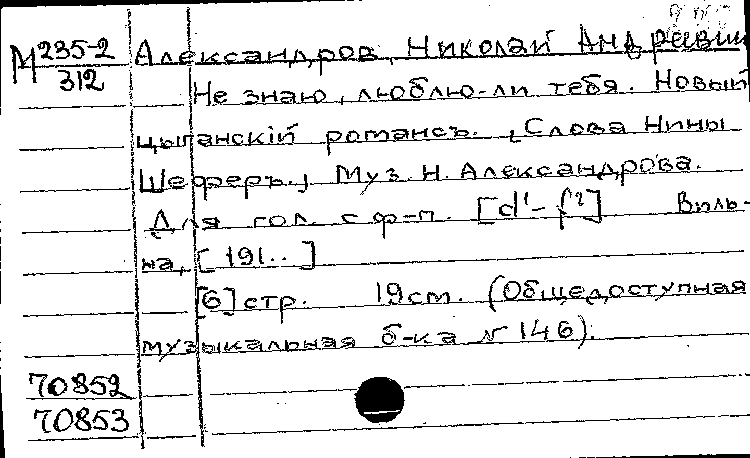 М 235-2
312
Александров, Николай Андреевич
Не знаю, люблю-ли тебя. Новый
цыганскiй романсъ. [Слова Нины
Шеферъ.] Муз. Н. Александрова.
Для гол. с ф-п. [d¹-f²] Виль-
на, [191..]
[6] стр. 19 см. (Общедоступная
музыкальная б-ка № 146).
70852
70853